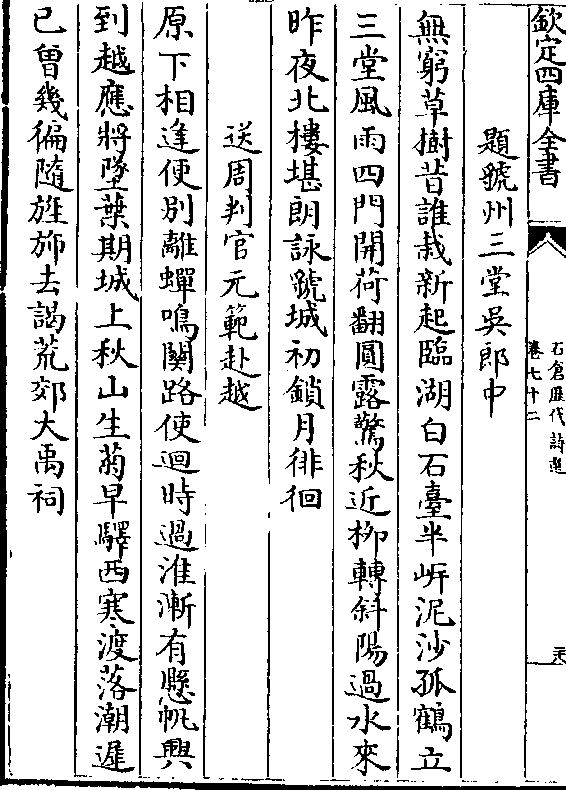 欽定四庫全書
石倉歷代詩選
卷七十二
題虢州三堂吳郎中
無窮草樹昔誰栽新起臨湖白石臺半岍泥沙孤鶴立
三堂風雨四門開荷翻圓露驚秋近栁轉斜陽過水來
昨夜北樓堪朗詠虢城初鎖月徘徊
送周判官元範赴越
原下相逢便別離蟬鳴關路使迴時過淮漸有懸帆興
到越應將墜葉期城上秋山生菊早驛西寒渡落潮遲
已曾幾徧隨旌斾去謁荒郊大禹祠